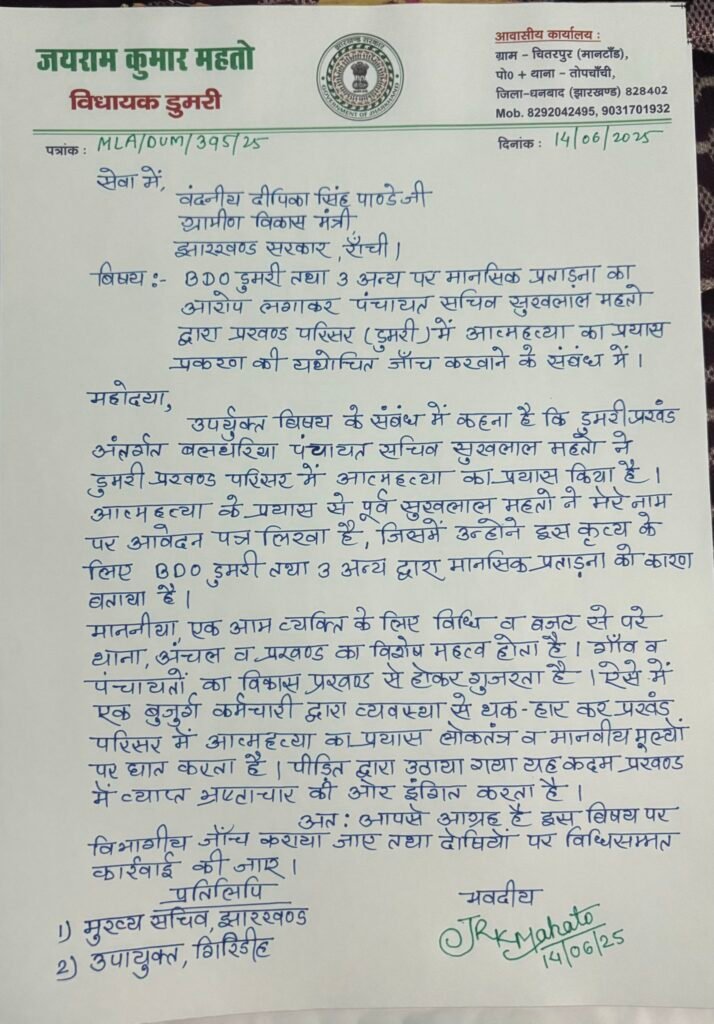 जयराम कुमार महतो
विधायक डुमरी
झारखण्ड सरकार
GOVERNMENT OF JHARKHAND
आवासीय कार्यालय :
ग्राम - चितरपुर (मानटाँड़),
पो० + थाना - तोपचाँची,
जिला-धनबाद (झारखण्ड) 828402
Mob. 8292042495, 9031701932
पत्रांक : MLA/DUM/395/25
दिनांक : 14/06/2025
सेवा में,
वंदनीय दीपिका सिंह पाण्डे जी
ग्रामीण विकास मंत्री,
झारखण्ड सरकार, राँची।
विषय :- BDO डुमरी तथा 3 अन्य पर मानसिक प्रताड़ना का
आरोप लगाकर पंचायत सचिव सुखलाल महतो
द्वारा प्रखण्ड परिसर (डुमरी) में आत्महत्या का प्रयास
प्रकरण की यथोचित जाँच करवाने के संबंध में।
महोदया,
उपर्युक्त विषय के संबंध में कहना है कि डुमरी प्रखंड
अंतर्गत बलथरिया पंचायत सचिव सुखलाल महतो ने
डुमरी प्रखण्ड परिसर में आत्महत्या का प्रयास किया है।
आत्महत्या के प्रयास से पूर्व सुखलाल महतो ने मेरे नाम
पर आवेदन पत्र लिखा है, जिसमें उन्होने इस कृत्य के
लिए BDO डुमरी तथा 3 अन्य द्वारा मानसिक प्रताड़ना को कारण
बताया है।
माननीया, एक आम व्यक्ति के लिए विधि व बजट से परे
थाना, अंचल व प्रखण्ड का विशेष महत्व होता है। गाँव व
पंचायतों का विकास प्रखण्ड से होकर गुजरता है। ऐसे में
एक बुजुर्ग कर्मचारी द्वारा व्यवस्था से थक-हार कर प्रखंड
परिसर में आत्महत्या का प्रयास लोकतंत्र व मानवीय मूल्यों
पर घात करता है। पीड़ित द्वारा उठाया गया यह कदम प्रखण्ड
में व्याप्त भ्रष्टाचार की ओर इंगित करता है।
अत: आपसे आग्रह है इस विषय पर
विभागीय जाँच कराया जाए तथा दोषियों पर विधिसम्मत
कार्रवाई की जाए।
प्रतिलिपि
1) मुख्य सचिव, झारखण्ड
2) उपायुक्त, गिरिडीह
भवदीय
JRKMahato
14/06/25